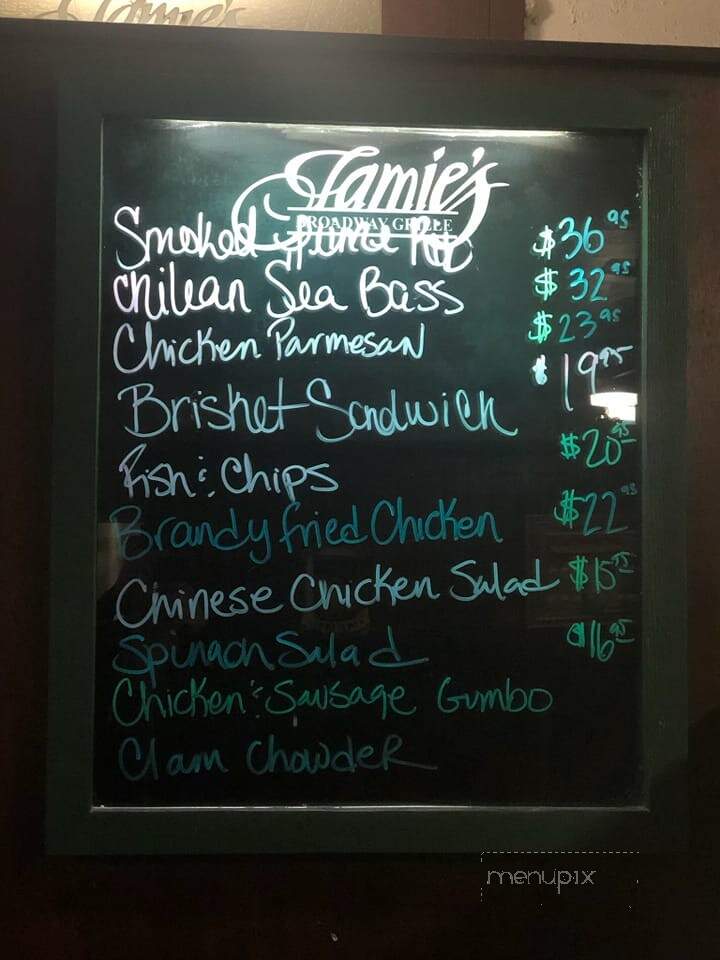 Jamie's
Jamie's
BROADWAY GRILLE
Smoked Prime Rib $36.95
Chilean Sea Bass $32.95
Chicken Parmesan $23.95
Brisket Sandwich $19.95
Fish & Chips $20.95
Brandy fried Chicken $22.95
Chinese Chicken Salad $15.95
Spinach Salad $16.95
Chicken & Sausage Gumbo
Clam Chowder
menupix